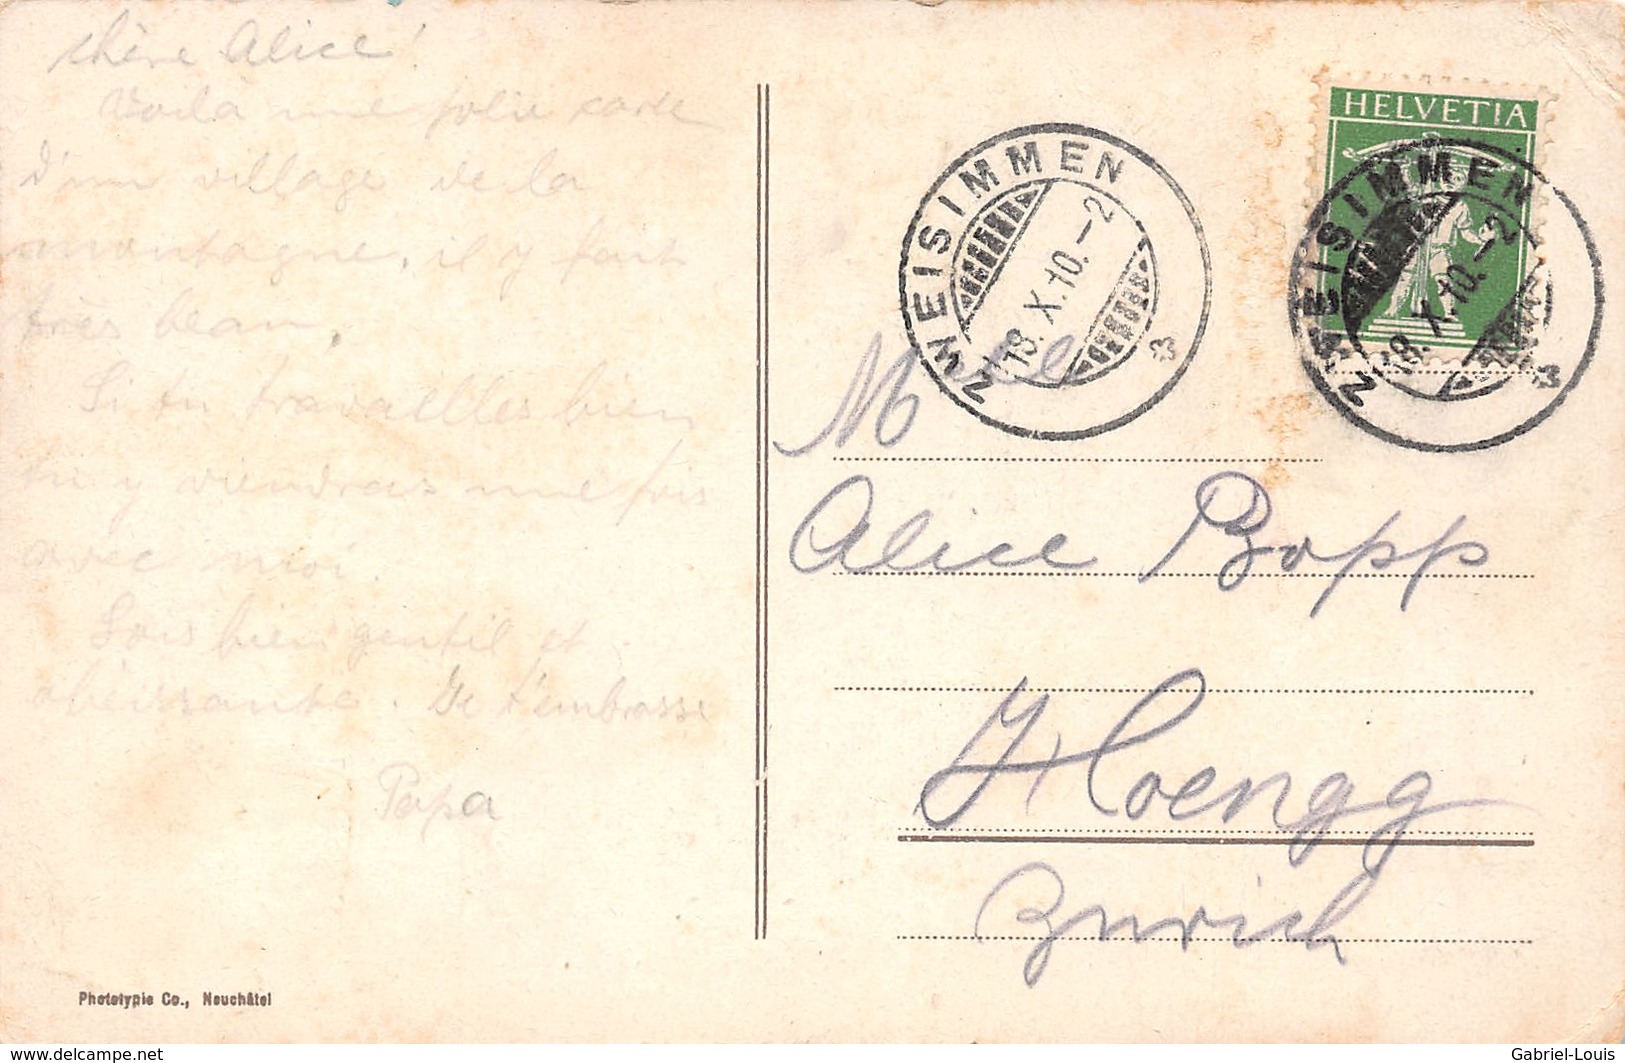 chère Alice!
Voilà une jolie carte
d'un village de la
montagne, il y fait
très beau.
Si tu travailles bien
tu y viendras une fois
avec moi.
Sois bien gentil et
obéissante. Je t'embrasse
Papa
Phototypie Co., Neuchâtel
HELVETIA
ZWEISIMMEN
18. X. 10. – 2
ZWEISIMMEN
18. X. 10. – 2
Melle
Alice Bopp
Hoengg
Zurich
www.delcampe.net
Gabriel-Louis